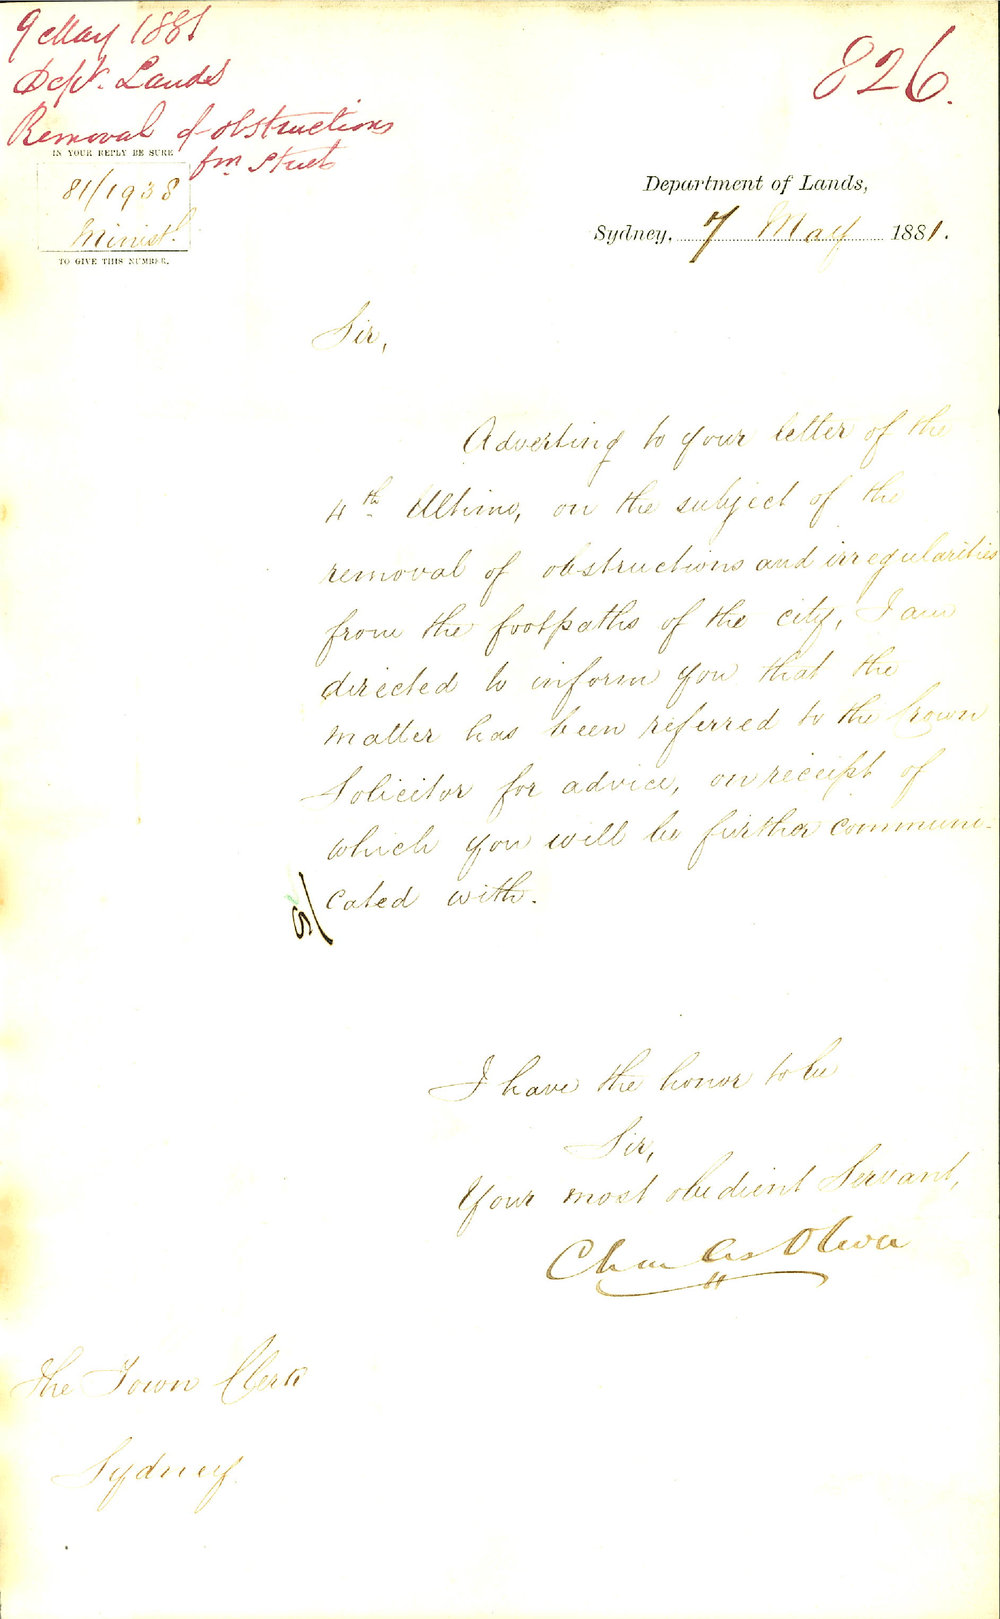 9 May 1881
Dept. Lands
Removal of obstructions
fm Street
826.
IN YOUR REPLY BE SURE
81/1938
Minist.l
TO GIVE THIS NUMBER.
Department of Lands,
Sydney. 7 May 1881.
Sir,
Adverting to your letter of the
4th Ultimo, on the subject of the
removal of obstructions and irregularities
from the footpaths of the city, I am
directed to inform you that the
matter has been referred to the Crown
Solicitor for advice, on receipt of
which you will be further communi-
cated with.
I have the honor to be
Sir,
Your most obedient Servant,
Charles Oliver
The Town Clerk
Sydney